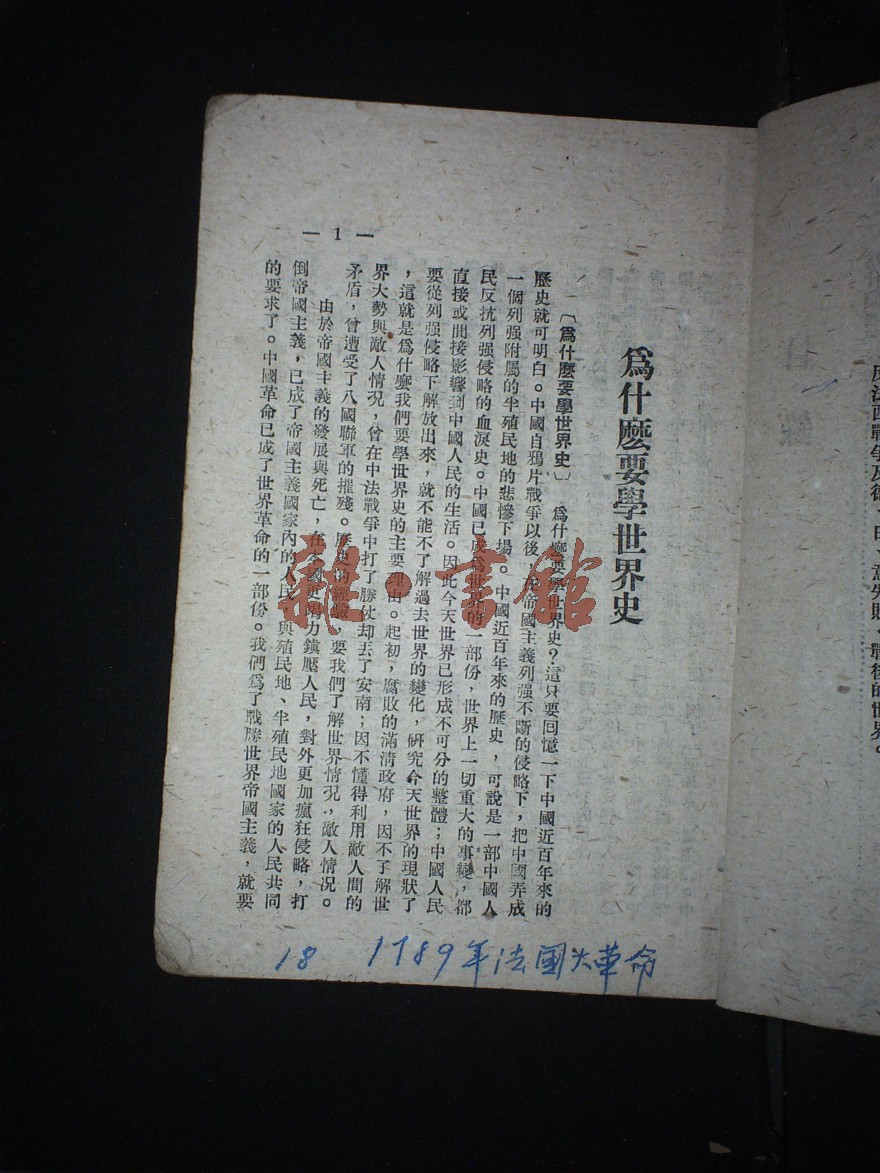 反法西戰爭及德、日、意失敗，戰後的世界。
爲什麽要學世界史
〔爲什麽要學世界史〕 爲什麽要學世界史？這只要回憶一下中國近百年來的
歷史就可明白。中國自鴉片戰爭以後，在帝國主義列强不斷的侵略下，把中國弄成
一個列强附屬的半殖民地的悲慘下場。中國近百年來的歷史，可說是一部中國人
民反抗列强侵略的血淚史。中國已成爲世界的一部份，世界上一切重大的事變，都
直接或間接影響到中國人民的生活。因此今天世界已形成不可分的整體；中國人民
要從列强侵略下解放出來，就不能不了解過去世界的變化，研究今天世界的現狀了
，這就是爲什麽我們要學世界史的主要理由。起初，腐敗的滿清政府，因不了解世
界大勢與敵人情況，曾在中法戰爭中打了勝仗却丟了安南；因不懂得利用敵人間的
矛盾，曾遭受了八國聯軍的摧殘。歷史的經驗，要我們了解世界情況，敵人情況。
由於帝國主義的發展與死亡，在本國更竭力鎮壓人民，對外更加瘋狂侵略，打
倒帝國主義，已成了帝國主義國家內的人民，與殖民地、半殖民地國家的人民共同
的要求了。中國革命已成了世界革命的一部份。我們爲了戰勝世界帝國主義，就要
— 1 —
18 1789年法國大革命
雜·書館